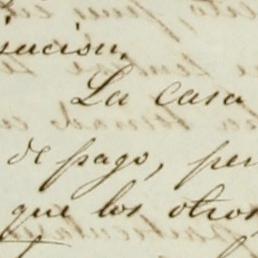 La casa
de pago, per
que los otros